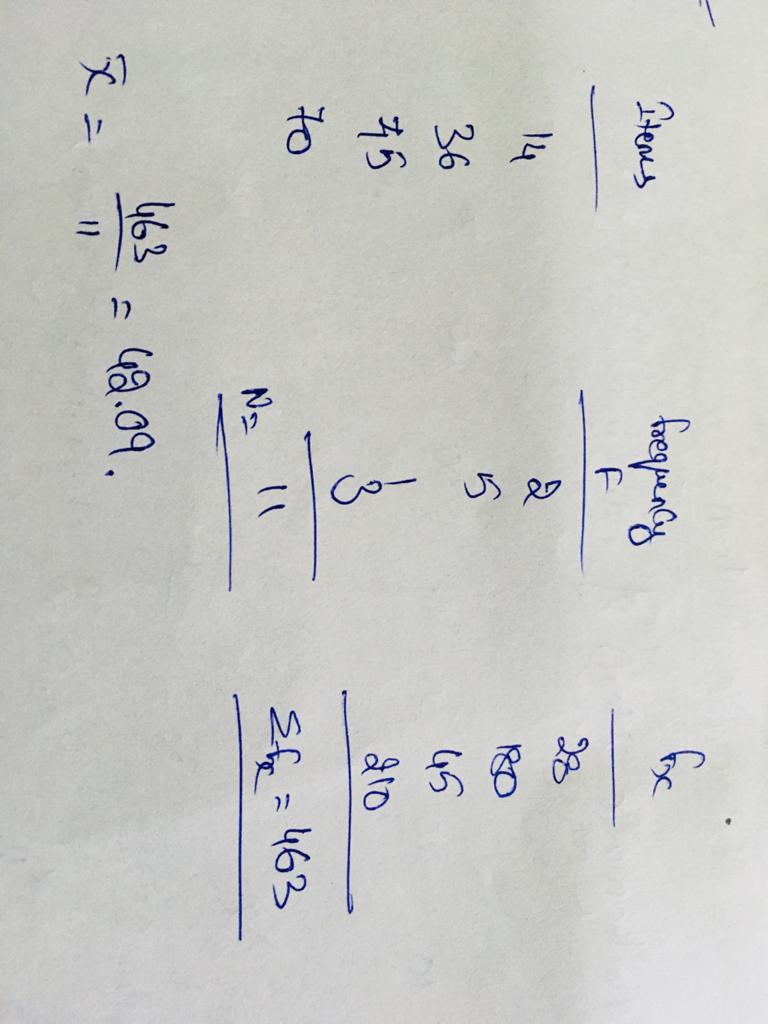 Items frequency fx
F
14 2 28
36 5 180
45 1 45
70 3 210
N= 11 Σfx = 463
x̄ = 463/11 = 42.09.